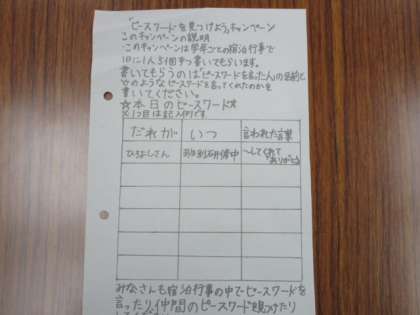 「ピースワードを見つけよう」キャンペーン
このキャンペーンの説明
・このキャンペーンは学年ごとの宿泊行事で
10に1人5個ずつ書いてもらいます。
書いてもらうのは「ピースワードを言った人」の名前と
どのようなピースワードを言ってくれたのかを
書いてください。
☆本日のピースワード☆
※1つ目は記入例です。
だれが いつ 言われた言葉
ひろよしさん 研修中 〜してくれてありがとう
みなさんも宿泊行事の中でピースワードを
言ったり仲間のピースワードを見つけたり